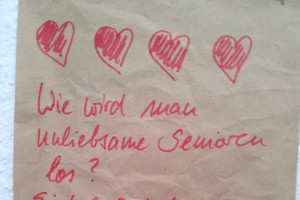 Wie wird man
unliebsame Senioren
los?